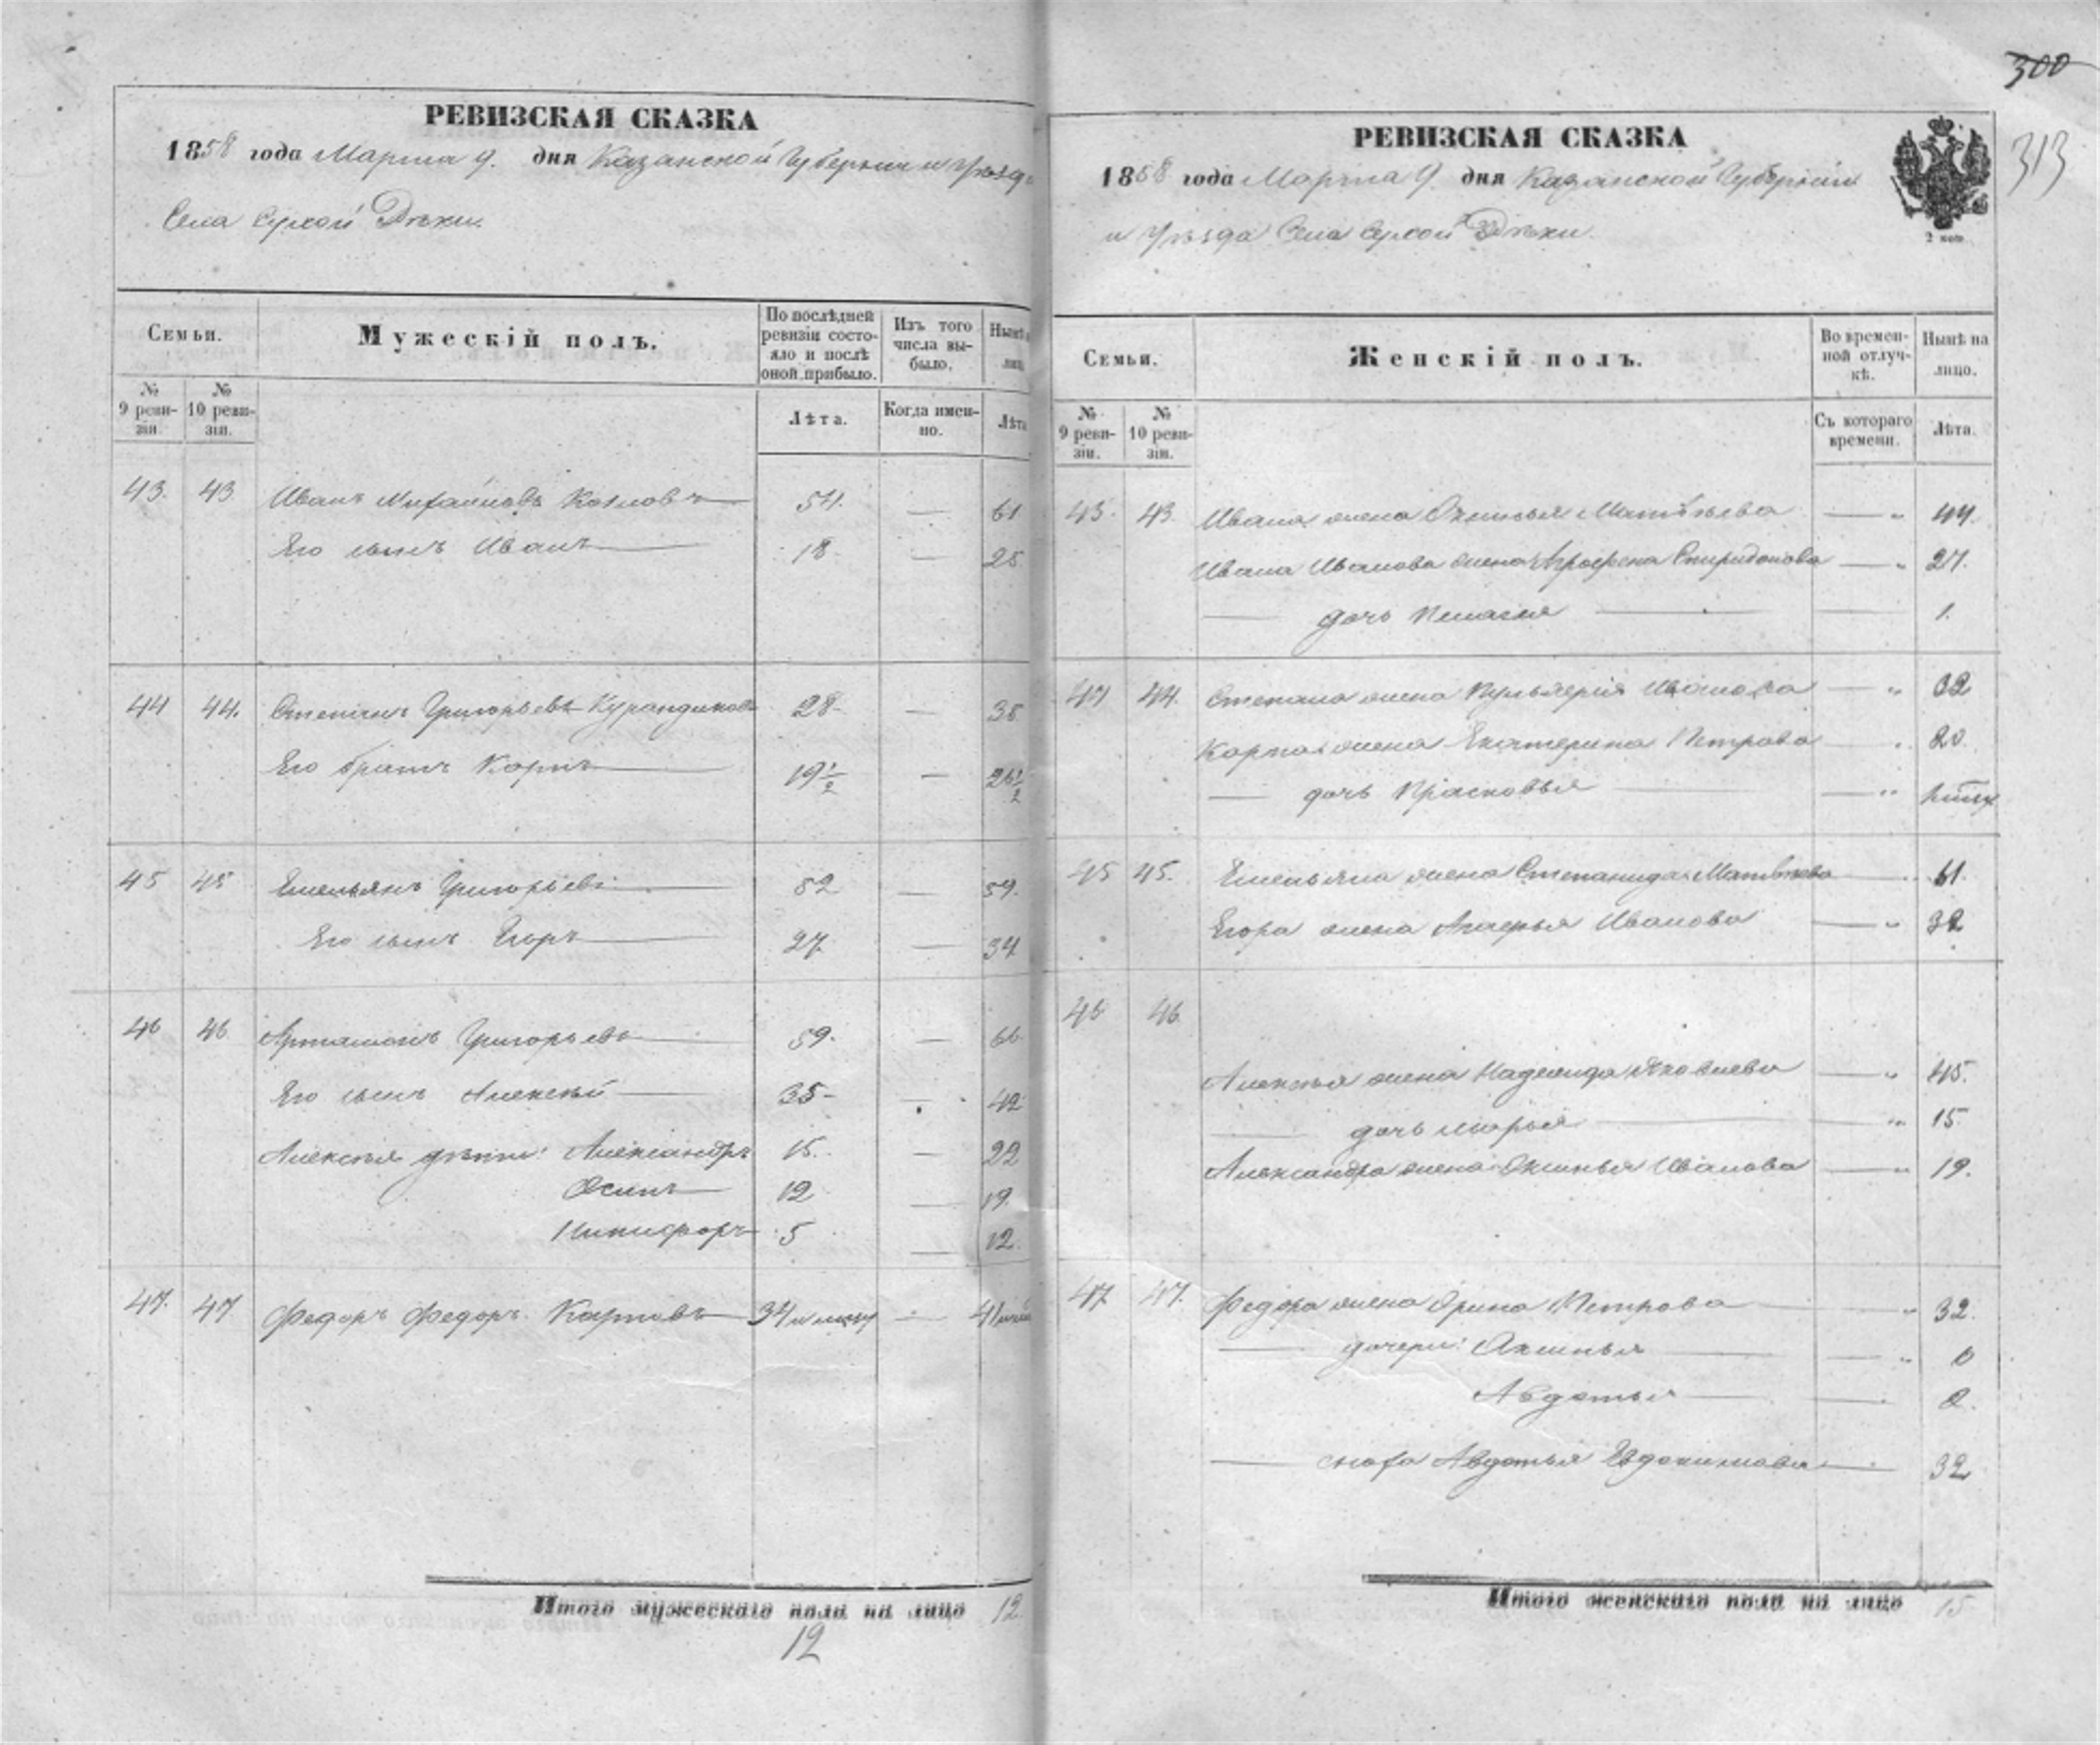 300
313
РЕВИЗСКАЯ СКАЗКА
1858 года Марта 9. дня Казанской Губернии и Уѣзда
Села Сухой Рѣки
Семьи.
Мужескій полъ.
По послѣдней ревизіи состояло и послѣ оной прибыло.
Изъ того числа выбыло.
Нынѣ на лицо
№ 9 ревизіи.
№ 10 ревизіи.
Лѣта.
Когда именно.
Лѣта
43. 43 Иванъ Михайловъ Козловъ 54. — 61
Его сынъ Иванъ 18 — 25
44 44. Степанъ Григорьевъ 28 — 35
Его братъ Карпъ 19 1/2 — 26 1/2
45 45 Емельянъ Григорьевъ 52 — 59.
Его сынъ Егоръ 27. — 34
46 46 Артамонъ Григорьевъ 59. — 66
Его сынъ Алексѣй 35 — 42
Алексѣя дѣти: Александръ 15. — 22
Осипъ 12 — 19.
Никифоръ 5 — 12.
47. 47 Федоръ Федор. Карповъ 34 — 41
Итого мужескаго пола на лицо 12.
12
РЕВИЗСКАЯ СКАЗКА
1858 года Марта 9. дня Казанской Губерніи
и Уѣзда Села Сухой Рѣки.
2 коп.
Семьи.
Женскій полъ.
Во временной отлучкѣ.
Нынѣ на лицо.
№ 9 ревизіи.
№ 10 ревизіи.
Съ котораго времени.
Лѣта.
43. 43. Ивана жена Аксинья Матвѣева — „ 44.
Ивана Иванова жена Агрофена Спиридонова — „ 27.
— дочь Пелагея — — 1.
44 44. Степана жена Пульхерія Иванова — „ 32
Карпа жена Екатерина Петрова — „ 20.
— дочь Прасковья — — „
45 45. Емельяна жена Степанида Матвѣева — „ 61.
Егора жена Иванова — „ 32
46 46
Алексѣя жена Надежда Яковлева — „ 45.
— дочь Марья — „ 15
Александра жена Аксинья Иванова — „ 19.
47 47. Федора жена Орина Петрова — „ 32.
— дочери: Аксинья — — „ 6
Авдотья — — 2.
— сноха Авдотья Евдокимова — 32
Итого женскаго пола на лицо 15